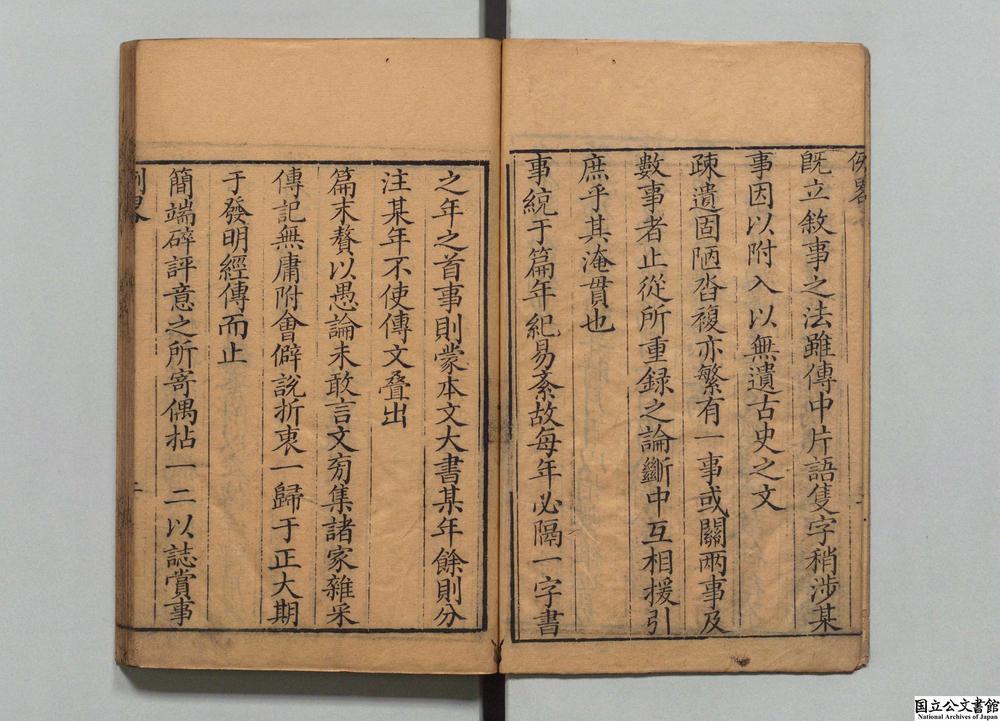 既立敘事之法雖傳中片語隻字稍涉某
事因以附入以無遺古史之文
疎遺固陋沓複亦繁有一事或關兩事及
數事者止從所重録之論斷中互相援引
庶乎其淹貫也
事統于篇年紀易紊故每年必隔一字書
之年之首事則蒙本文大書某年餘則分
注某年不使傳文叠出
篇末贅以愚論未敢言文旁集諸家雜采
傳記無庸附會僻說折衷一歸于正大期
于發明經傳而止
簡端碎評意之所寄偶拈一二以誌賞事
二
国立公文書館
National Archives of Japan